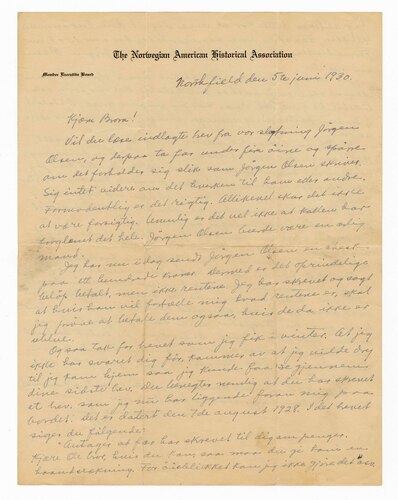 The Norwegian American Historical Association
Member Executive Board
Northfield den 5te juni 1930.
Kjære Brora!
Vil du læse indlagte brev fra vor slegtning Jørgen
Olsen, og derpaa ta far under fire øine og spørre
om det forholder sig slik som Jørgen Olsen skriver.
Sig intet videre om det hverken til ham eller andre.
Formodentlig er det rigtig. Allikevel skal det ikke
at være forsigtig. Umulig er det vel ikke at kallen har
det hele. Jørgen Olsen burde være en ærlig
mand.
Jeg har nu idag sendt Jørgen Olsen en check
paa ett hundrede kroner. Dermed er det oprindelige
beløp betalt, men ikke rentene. Jeg har skrevet og sagt
at hvis han vil fortelle mig hvad rentene er, skal
jeg prøve at betale dem ogsaa, hvis de da ikke er
Ogsaa takk for brevet som jeg fik i vinter. At jeg
ikke har svaret dig før, kommer av at jeg vilde dry
til jeg kom hjem saa jeg kunde faa se gjennem
dine siste brev. Du benegtes nemlig at du har skrevet
et brev, som jeg nu har liggende foran mig paa
bordet. Det er datert den 7de august 1928. I det brevet
siger du følgende:
"Antager at far har skrevet til dig om penger.
Kjære Ole bror, hvis du kan, saa maa du gi ham en
haandsrekning. For øieblikket kan jeg ikke gjøre det